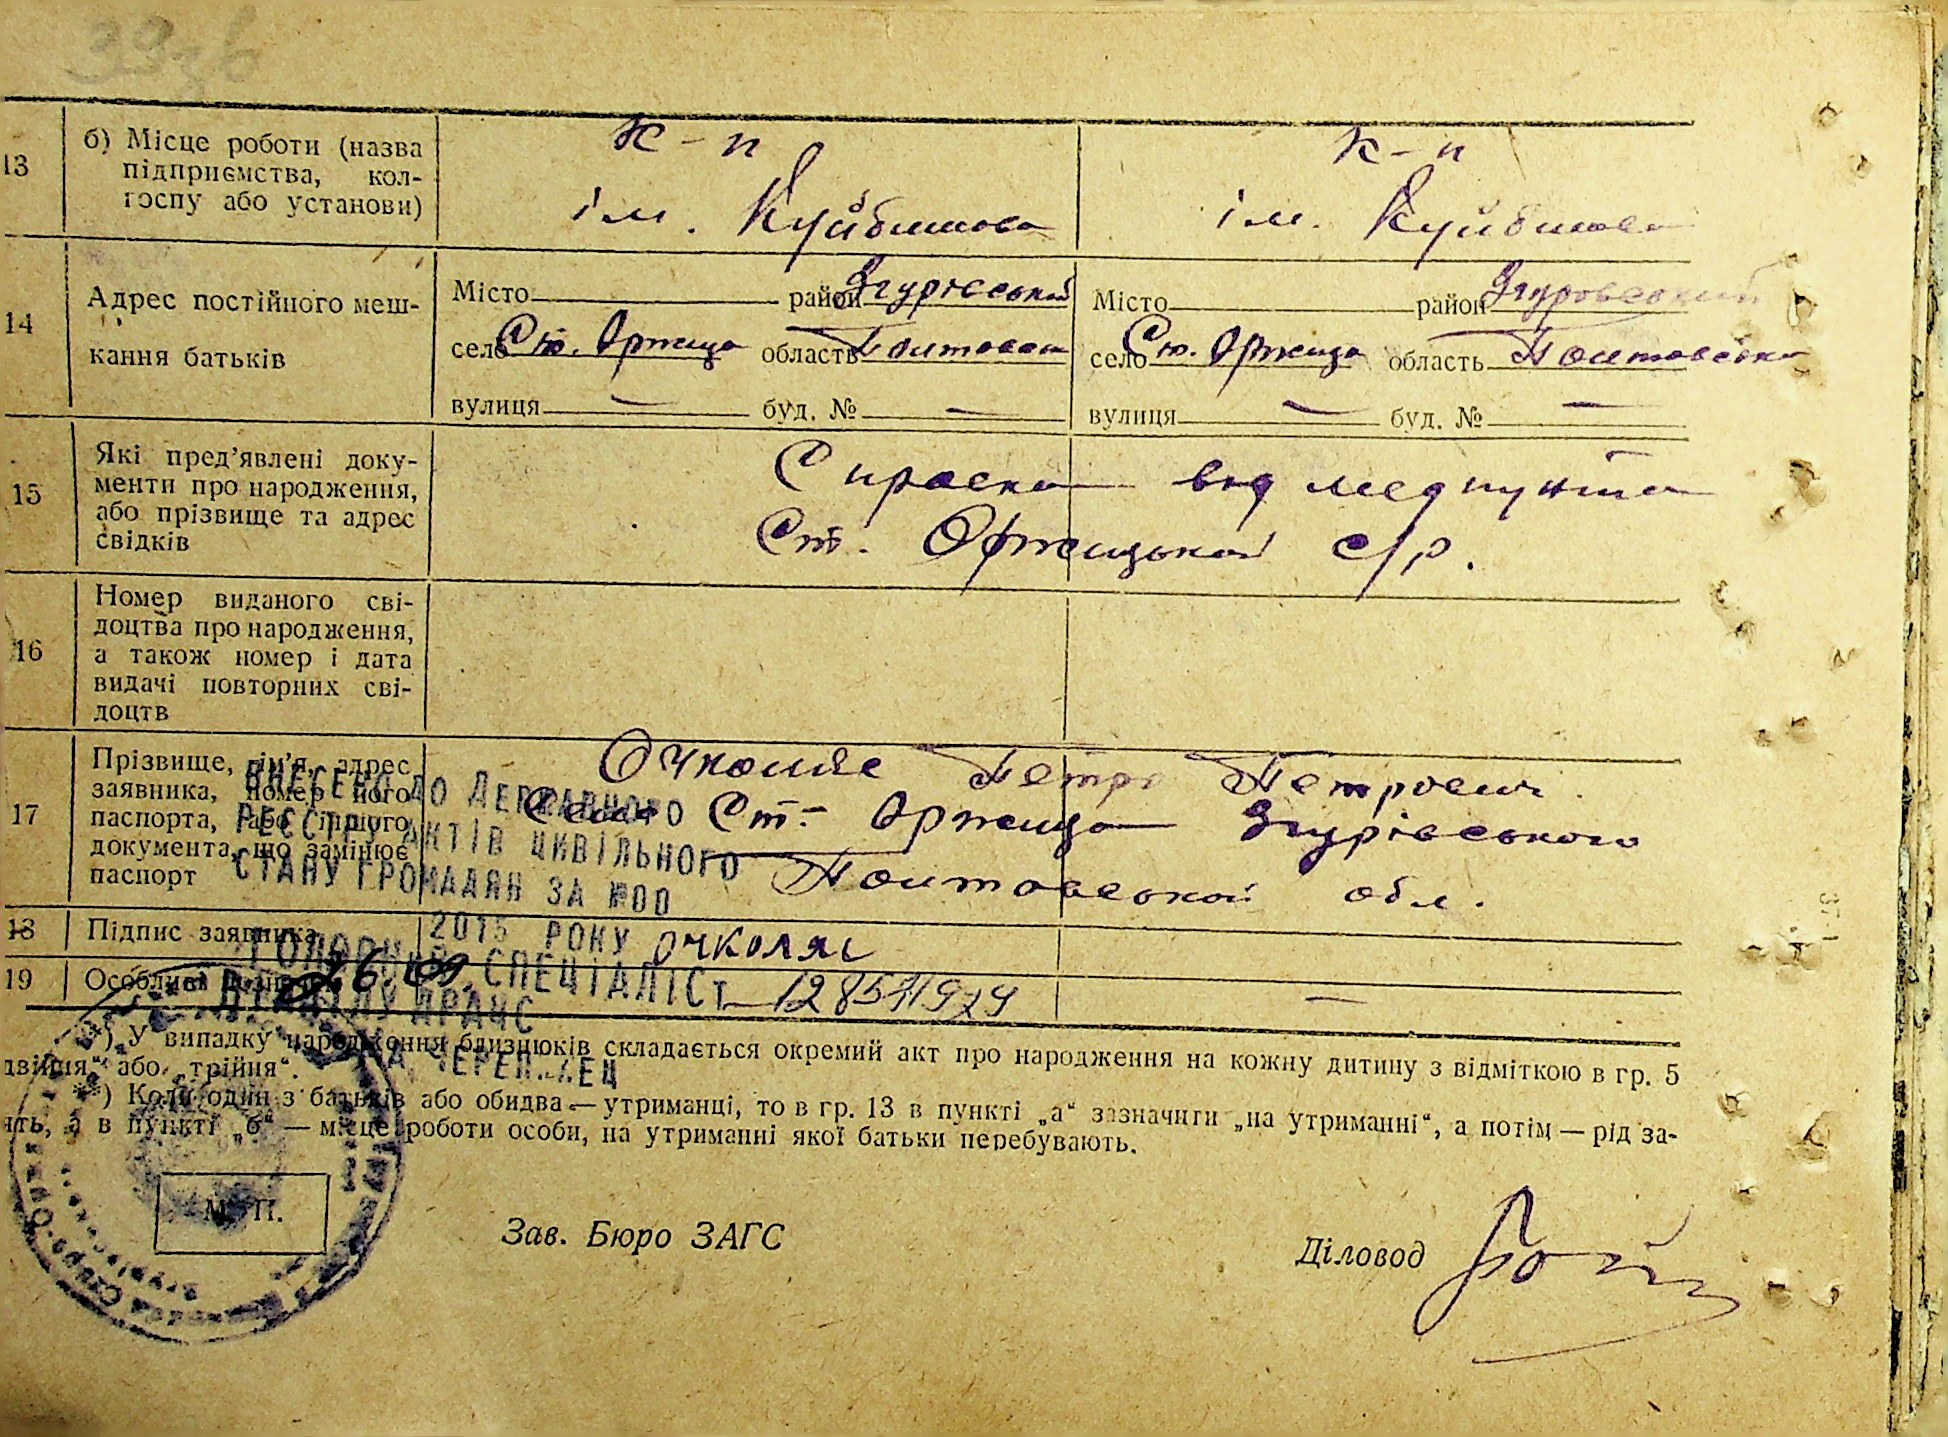 13 б) Місце роботи (назва підприємства, колгоспу або установи)
к-п к-п
ім. Куйбишева ім. Куйбишева
14 Адрес постійного мешкання батьків
Місто район Згурівський Місто район Згуровський
село Ст. Оржиця область Полтавськ село Ст. Оржиця область Полтавська
вулиця — буд. № — вулиця — буд. № —
15 Які пред’явлені документи про народження, або прізвище та адрес свідків
Справка від медпункта
Ст. Оржицької с/р.
16 Номер виданого свідоцтва про народження, а також номер і дата видачі повторних свідоцтв
17 Прізвище, ім’я, адрес заявника, номер його паспорта, або іншого документа, що замінює паспорт
Очколяс Петро Петрович
Село Ст. Оржиця Згурівського
Полтавської обл.
ВНЕСЕНО ДО ДЕРЖАВНОГО
РЕЄСТРУ АКТІВ ЦИВІЛЬНОГО
СТАНУ ГРОМАДЯН ЗА №00
2015 РОКУ
18 Підпис заявника очколяс
ГОЛОВНИЙ СПЕЦІАЛІСТ
19 Особливі
26.09.
ВІДДІЛУ ДРАЦС
*) У випадку народження близнюків складається окремий акт про народження на кожну дитину з відміткою в гр. 5
двійня“ або „трійня“.
**) Коли один з батьків або обидва — утриманці, то в гр. 13 в пункті „а“ зазначити „на утриманні“, а потім — рід за-
ять, а в пункті „б“ — місце роботи особи, на утриманні якої батьки перебувають.
М. П.
Зав. Бюро ЗАГС
Діловод